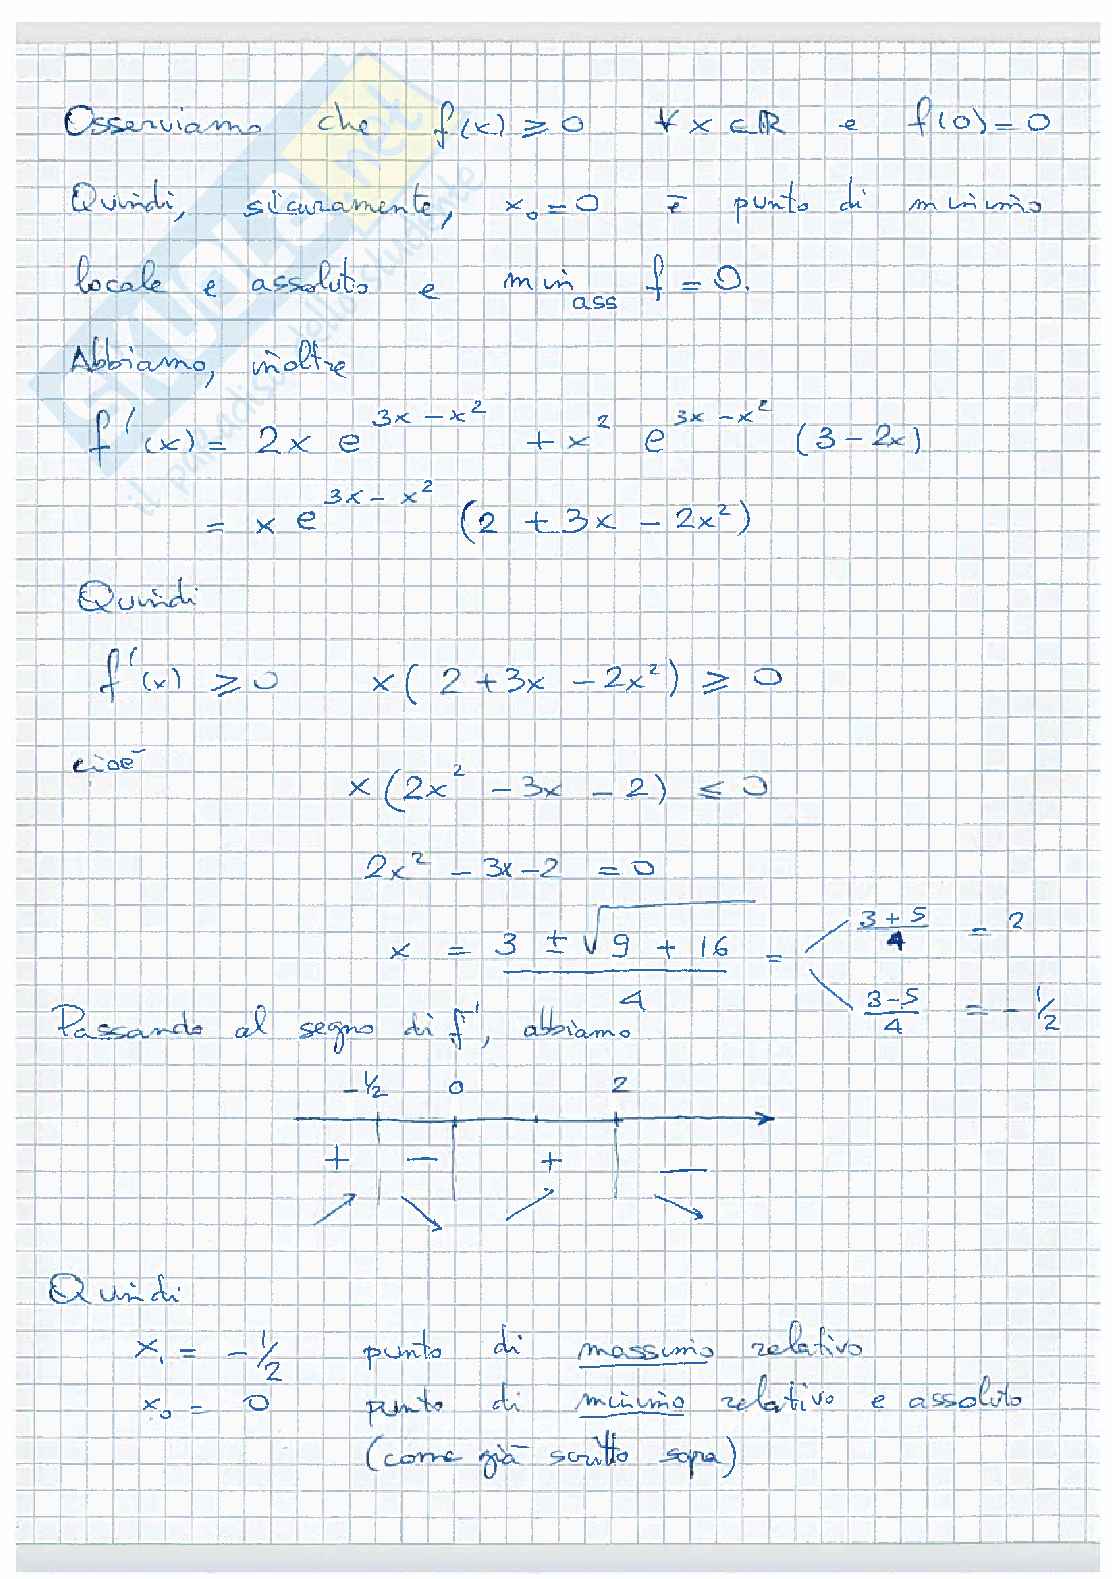 Osserviamo che f(x) ≥ 0 ∀ x ∈ ℝ e f(0) = 0
Quindi, sicuramente, x₀ = 0 è punto di minimo
locale e assoluto e min_ass f = 0.
Abbiamo, inoltre
f'(x) = 2x e^{3x - x²} + x² e^{3x - x²} (3 - 2x)
= x e^{3x - x²} (2 + 3x - 2x²)
Quindi
f'(x) ≥ 0 x(2 + 3x - 2x²) ≥ 0
cioè
x(2x² - 3x - 2) ≤ 0
2x² - 3x - 2 = 0
x = (3 ± √(9 + 16))/4 = (3 + 5)/4 = 2
(3 - 5)/4 = - 1/2
Passando al segno di f', abbiamo
- 1/2 0 2
+ - + -
Quindi
x₁ = - 1/2 punto di massimo relativo
x₀ = 0 punto di minimo relativo e assoluto
(come già scritto sopra)
SKUOLA.net
il paradiso dello studente